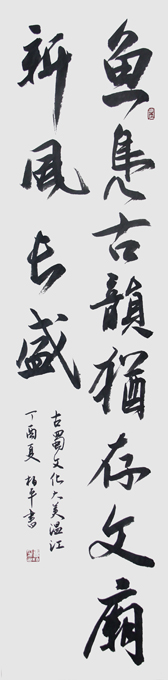 鱼凫古韻猶存文廟
新风长盛
古蜀文化大美温江
丁酉夏 柏平書